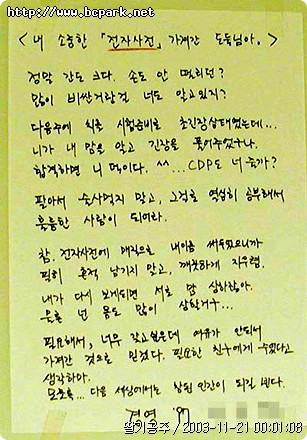 http://www.bcpark.net
< 내 소중한 「전자사전」 가져간 도둑님아. >
정말 간도 크다. 손도 안 떨리던?
많이 비싼거란건 너도 알고있지?
다음주에 치를 시험준비로 초긴장상태였는데...
니가 내 맘을 알고 긴장을 풀어주었구나.
합격하면 니 덕이다. ^^ ... CDP도 너 줄까?
팔아서 술사먹지 말고, 그걸로 열심히 공부해서
훌륭한 사람이 되어라.
참. 전자사전에 매직으로 내이름 써두었으니까
딱히 흔적 남기지 말고, 깨끗하게 지우렴.
내가 다시 보게되면 서로 맘 상하잖아.
물론 넌 몸도 많이 상할거구...
필요해서, 너무 갖고싶은데 여유가 안되서
가져간 것으로 믿겠다. 필요한 친구에게 주었다고
생각하마.
모쪼록... 다음 세상에서는 참된 인간이 되길 빈다.
경영 '97
엽기공주 / 2003-11-21 00:01:06